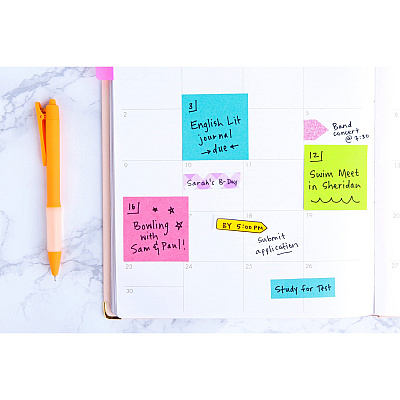 2
3
English Lit
journal
→due←
5
Band
concert
@ 7:30
9
10
11
Sarah's B-Day
12
Swim Meet
in Sheridan
16
Bowling
with
Sam & Paul!
17
18
BY 5:00 PM
Submit
application
19
23
24
25
26
Study for Test
30